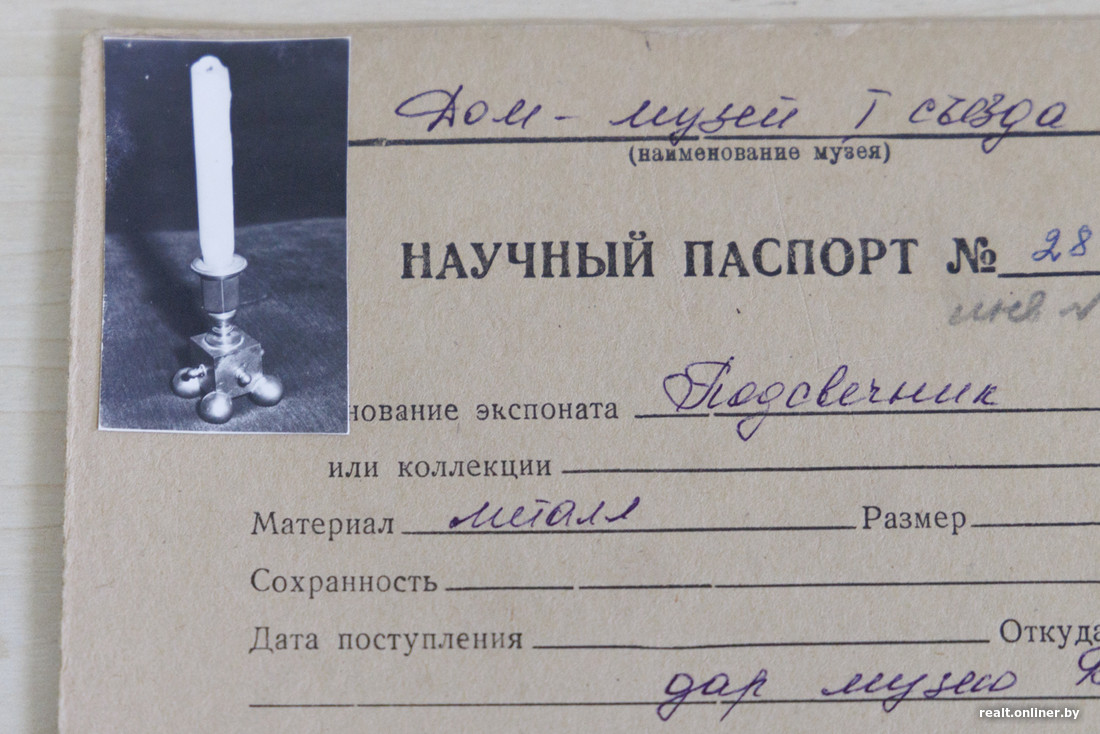 Дом-музей I съезда
(наименование музея)
НАУЧНЫЙ ПАСПОРТ № 28
инв №
нование экспоната Подсвечник
или коллекции
Материал металл Размер
Сохранность
Дата поступления Откуда
дар музею
realt.onliner.by